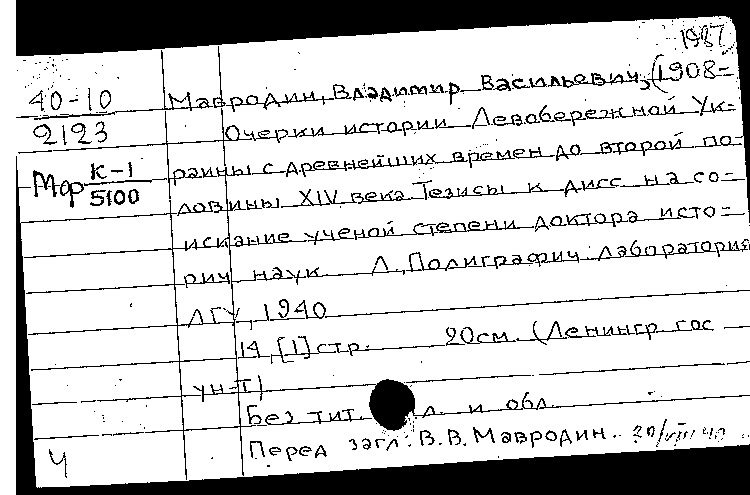 1987
40-10 Мавродин, Владимир Васильевич, (1908-
2123 Очерки истории Левобережной Ук-
Мор К-1/5100 раины с древнейших времен до второй по-
ловины XIV века. Тезисы к дисс. на со-
искание ученой степени доктора исто-
рич наук. Л., Полиграфич. лаборатория
ЛГУ, 1940
14, [1] стр. 20см. (Ленингр. гос
ун-т)
Без тит. л. и обл.
Ч Перед загл.: В.В. Мавродин. 30/VIII 40